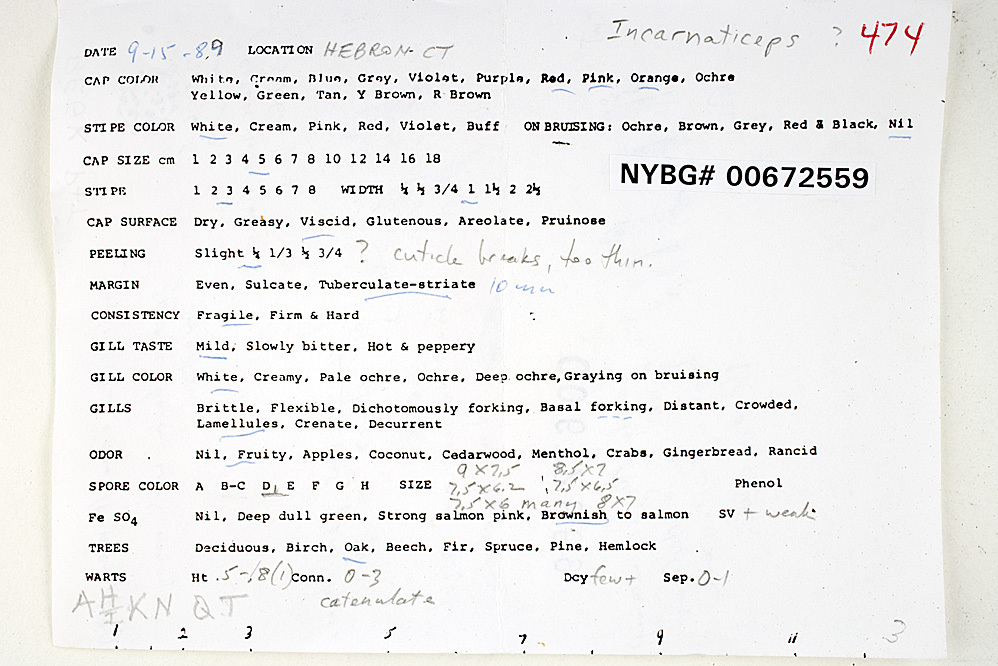 Incarnaticeps ? 474
DATE 9-15-89 LOCATION HEBRON-CT
CAP COLOR White, Cream, Blue, Grey, Violet, Purple, Red, Pink, Orange, Ochre
Yellow, Green, Tan, Y Brown, R Brown
STIPE COLOR White, Cream, Pink, Red, Violet, Buff ON BRUISING: Ochre, Brown, Grey, Red & Black, Nil
CAP SIZE cm 1 2 3 4 5 6 7 8 10 12 14 16 18
NYBG# 00672559
STIPE 1 2 3 4 5 6 7 8 WIDTH ¼ ½ 3/4 1 1½ 2 2½
CAP SURFACE Dry, Greasy, Viscid, Glutenous, Areolate, Pruinose
PEELING Slight ¼ 1/3 ½ 3/4 ? cuticle breaks, too thin.
MARGIN Even, Sulcate, Tuberculate-striate 10 mm
CONSISTENCY Fragile, Firm & Hard
GILL TASTE Mild, Slowly bitter, Hot & peppery
GILL COLOR White, Creamy, Pale ochre, Ochre, Deep ochre, Graying on bruising
GILLS Brittle, Flexible, Dichotomously forking, Basal forking, Distant, Crowded,
Lamellules, Crenate, Decurrent
ODOR Nil, Fruity, Apples, Coconut, Cedarwood, Menthol, Crabs, Gingerbread, Rancid
9X7,5 8,5X7
SPORE COLOR A B-C D E F G H SIZE 7,5X6.2 7,5X6,5 Phenol
7,5X6 many 8X7
Fe SO4 Nil, Deep dull green, Strong salmon pink, Brownish to salmon SV + weak
TREES Deciduous, Birch, Oak, Beech, Fir, Spruce, Pine, Hemlock
WARTS Ht .5-.8(1) Conn. 0-3 Dcy few + Sep. 0-1
AHIKN QT catenulate
1 2 3 5 7 9 11 3